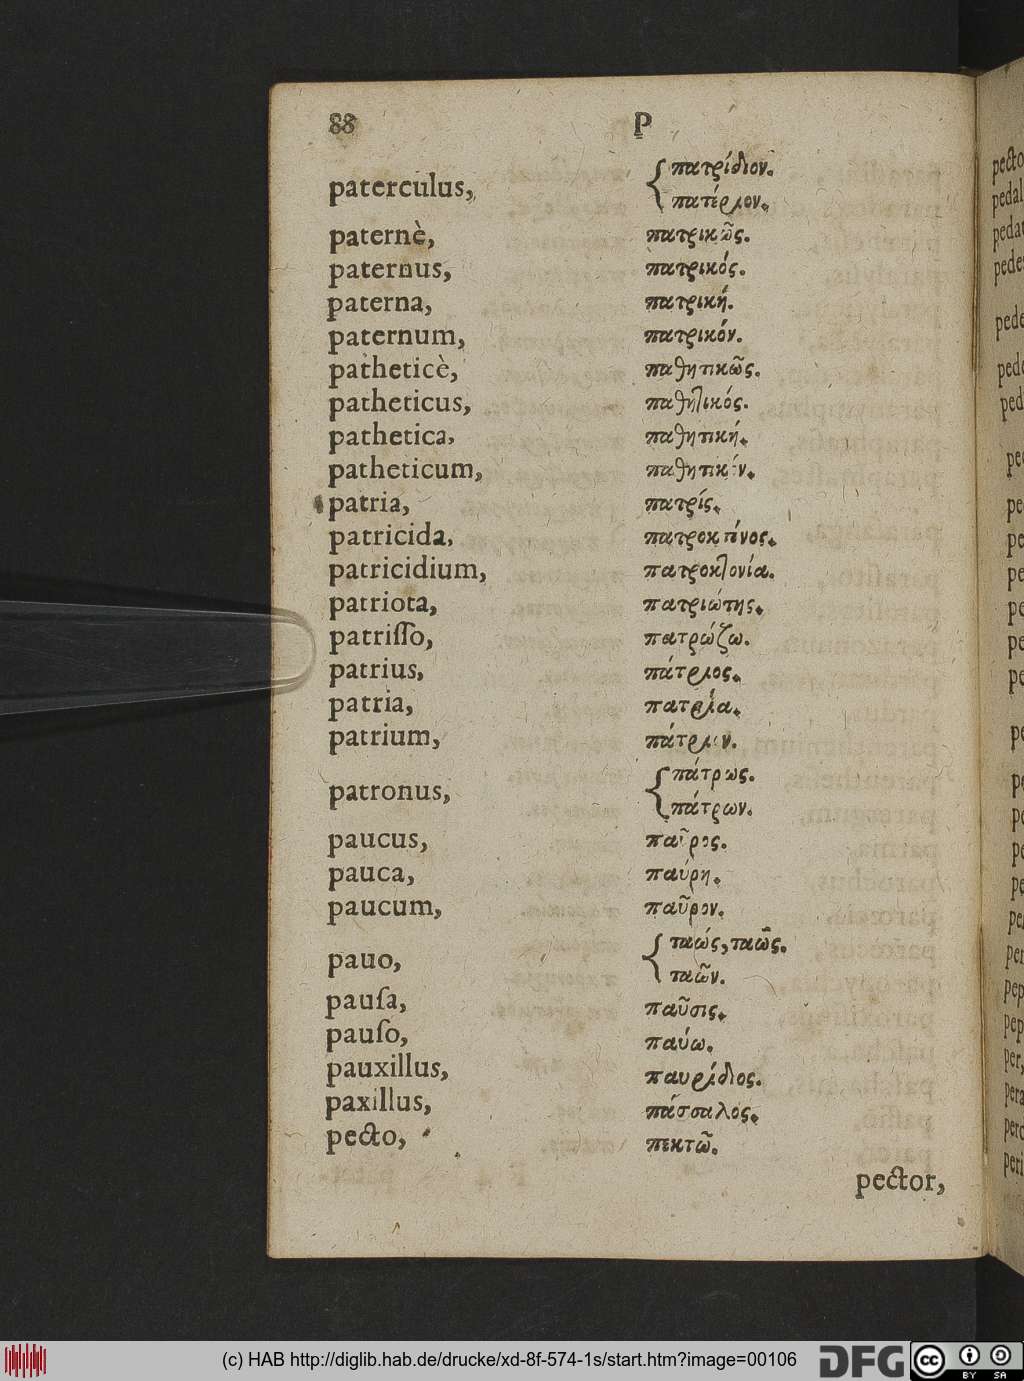 88 P
paterculus, { πατρίδιον.
πατέριον.
paternè, πατρικῶς.
paternus, πατρικός.
paterna, πατρική.
paternum, πατρικόν.
patheticè, παθητικῶς.
patheticus, παθητικός.
pathetica, παθητική.
patheticum, παθητικόν.
patria, πατρίς.
patricida, πατροκτόνος.
patricidium, πατροκτονία.
patriota, πατριώτης.
patriſſo, πατρώζω.
patrius, πάτριος.
patria, πατρία.
patrium, πάτριον.
patronus, { πάτρως.
πάτρων.
paucus, παῦρος.
pauca, παύρη.
paucum, παῦρον.
pavo, { ταώς, ταῶς.
ταῶν.
pauſa, παῦσις.
pauſo, παύω.
pauxillus, παυρίδιος.
paxillus, πάσσαλος.
pecto, πεκτῶ.
pector,
(c) HAB http://diglib.hab.de/drucke/xd-8f-574-1s/start.htm?image=00106
DFG
cc BY SA